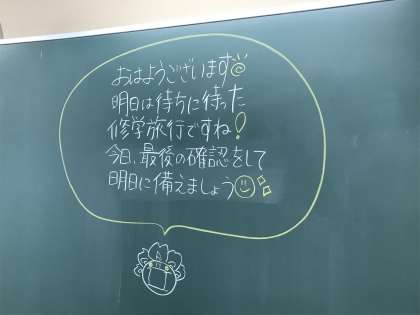 おはようございます
明日は待ちに待った
修学旅行ですね!
今日、最後の確認をして
明日に備えましょう